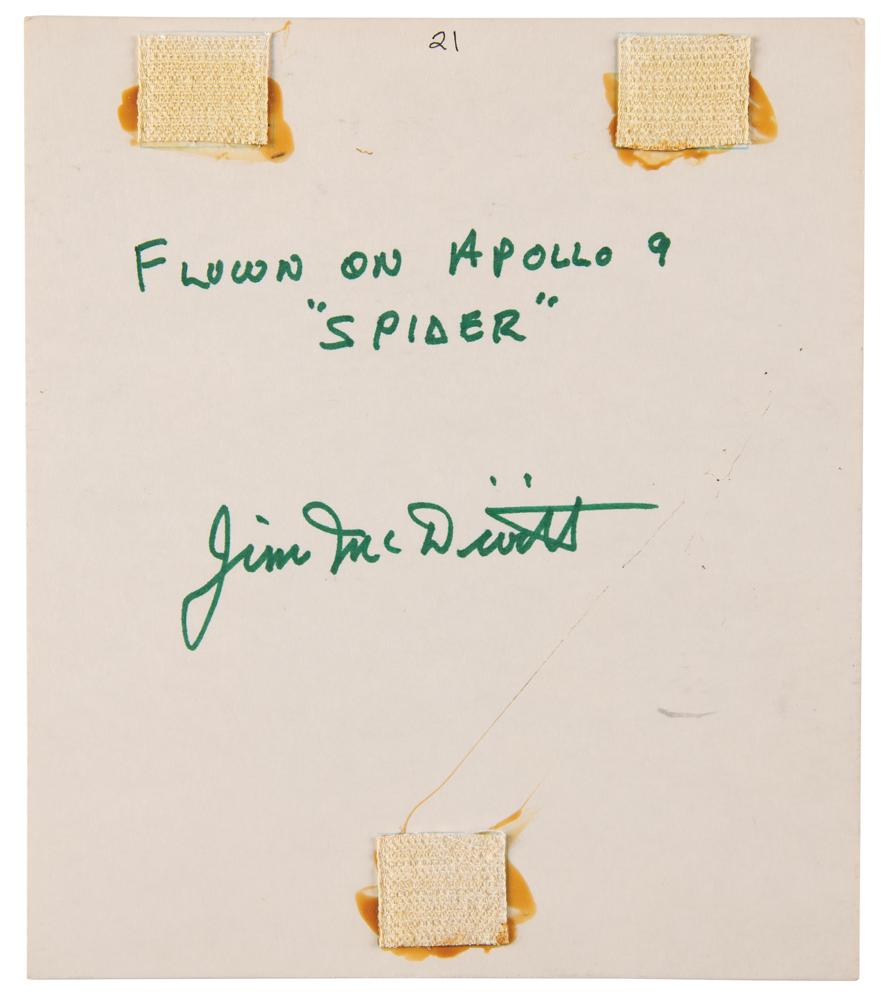 21
FLOWN ON APOLLO 9
"SPIDER"
Jim McDivitt